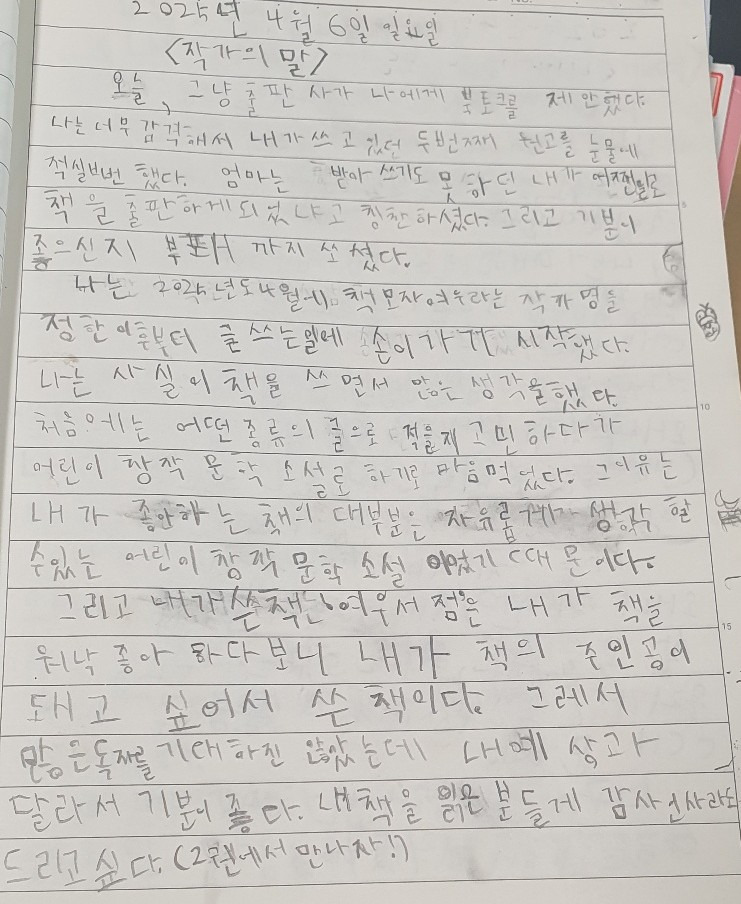 2025년 4월 6일 일요일
<작가의 말>
오늘, 그냥 출판 사가 나에게 북토크를 제안했다.
나는 너무 감격해서 내가 쓰고 있던 두번째 원고를 눈물에
적실뻔번 했다. 엄마는 받아 쓰기도 못 하던 내가 어쩐일로
책을 출판하게 되었냐고 칭찬하셨다. 그리고 기분이
좋으신지 부패까지 쏘셨다.
나는 2025년도 4월에 책모자여우라는 작가명을
정한이후부터 글쓰는일에 손이가기 시작했다.
나는 사실 이 책을 쓰면서 많은 생각을했다.
처음에는 어떤 종류의 글으로 적을재 고민하다가
어린이 창작 문학 소설로 하기로 마음먹었다. 그이유는
내가 좋아하는 책의 대부분은 자유롭게 생각할
수있는 어린이 창작 문학 소설 이었기 때문이다.
그리고 내가쓴 여우서점은 내가 책을
워낙 좋아 하다보니 내가 책의 주인공이
돼고 싶어서 쓴 책이다. 그레서
많은독자를 기대하진 않았는데 내예상과
달라서 기분이 좋다. 내책을 읽은 분들게 감사인사라도
드리고 싶다. (2권에서 만나자!)
10
15